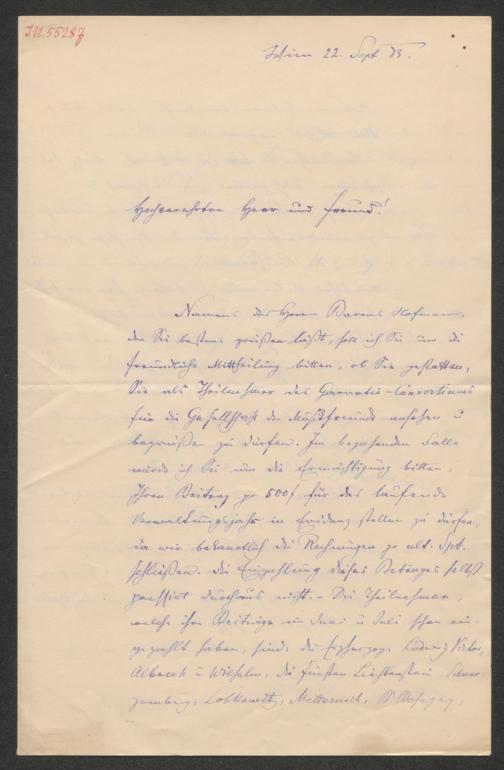 I.N. 55287
Wien 22. Sept 83.
Hochverehrter Herr und Freund!
Namens des Herrn Barons Hofmann,
der Sie bestens grüßen läßt, soll ich Sie um die
freundliche Mittheilung bitten, ob Sie gestatten,
Sie als Theilnehmer des Garantie-Consortiums
für die Gesellschaft der Musikfreunde ansehen u
begrüßen zu dürfen. Im bejahenden Falle
würde ich Sie um die Ermächtigung bitten,
Ihren Beitrag pr 500 f für das laufende
Verwaltungsjahr in Evidenz stellen zu dürfen,
da wir bekanntlich die Rechnungen pr ult. Spt.
schließen. Die Einzahlung dieses Betrages selbst
pressirt durchaus nicht. – Die Theilnehmer,
welche ihre Beiträge im Juni u Juli schon ein-
gezahlt haben, sind: die Erzherzoge Ludwig Victor,
Albrecht u Wilhelm, die Fürsten Liechtenstein, Schwar-
zenberg, Lobkowitz, Metternich,